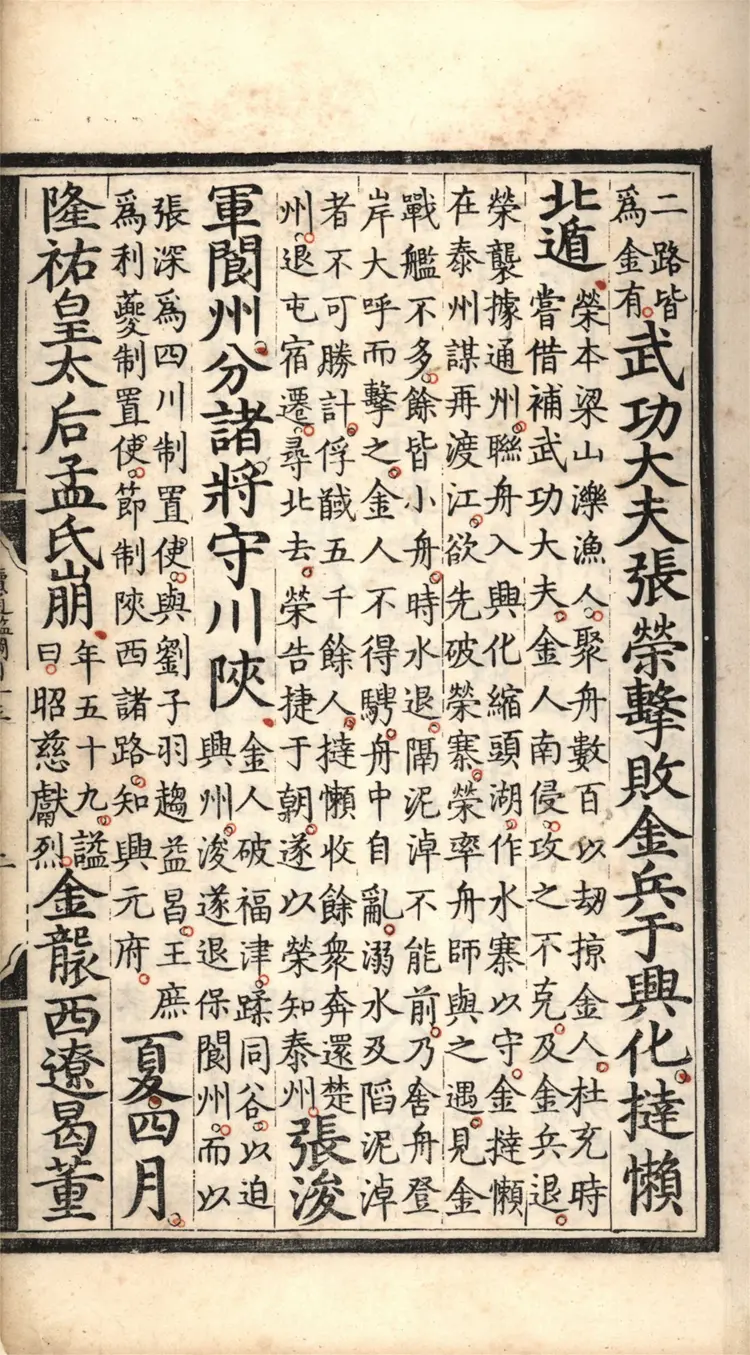 二路皆
爲金有
武功大夫張榮擊敗金兵于興化撻懶
北遁
榮本梁山濼漁人聚舟數百以劫掠金人杜充時
嘗借補武功大夫金人南侵攻之不克及金兵退
榮襲據通州聯舟入興化縮頭湖作水寨以守金撻懶
在泰州謀再渡江欲先破榮寨榮率舟師與之遇見金
戰艦不多餘皆小舟時水退隔泥淖不能前乃舍舟登
岸大呼而擊之金人不得騁舟中自亂溺水及陷泥淖
者不可勝計俘馘五千餘人撻懶收餘衆奔還楚
州退屯宿遷尋北去榮告捷于朝遂以榮知泰州
張浚
軍閬州分諸將守川陝
金人破福津蹂同谷以迫
興州浚遂退保閬州而以
張深爲四川制置使與劉子羽趨益昌王庶
爲利夔制置使節制陝西諸路知興元府
夏四月
隆祐皇太后孟氏崩
年五十九謚
曰昭慈獻烈
金襲西遼曷董